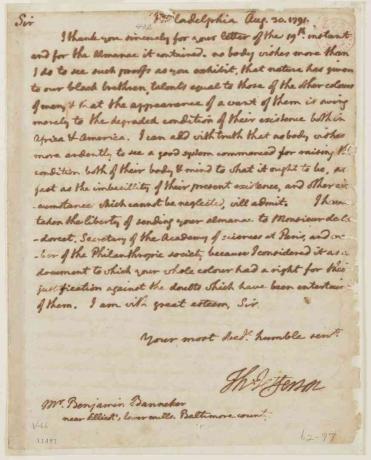 Sir Philadelphia Aug. 30. 1791.
I thank you sincerely for your letter of the 19th. instant
and for the almanac it contained. no body wishes more than
I do to see such proofs as you exhibit, that nature has given
to our black brethren, talents equal to those of the other colours
of men, & that the appearance of a want of them is owing
merely to the degraded condition of their existence both in
Africa & America. I can add with truth that no body wishes
more ardently to see a good system commenced for raising the
condition both of their body & mind to what it ought to be, as
fast as the imbecillity of their present existence, and other cir-
cumstance which cannot be neglected, will admit. I have
taken the liberty of sending your almanac to Monsieur de Con-
dorcet, Secretary of the Academy of sciences at Paris, and mem-
ber of the Philanthropic society because I considered it as a
document to which your whole colour had a right for their
justification against the doubts which have been entertained
of them. I am with great esteem, Sir
Your most obedt. humble servt.
Th. Jefferson
Mr. Benjamin Banneker
near Ellicot's, lower mills. Baltimore county.
62-97